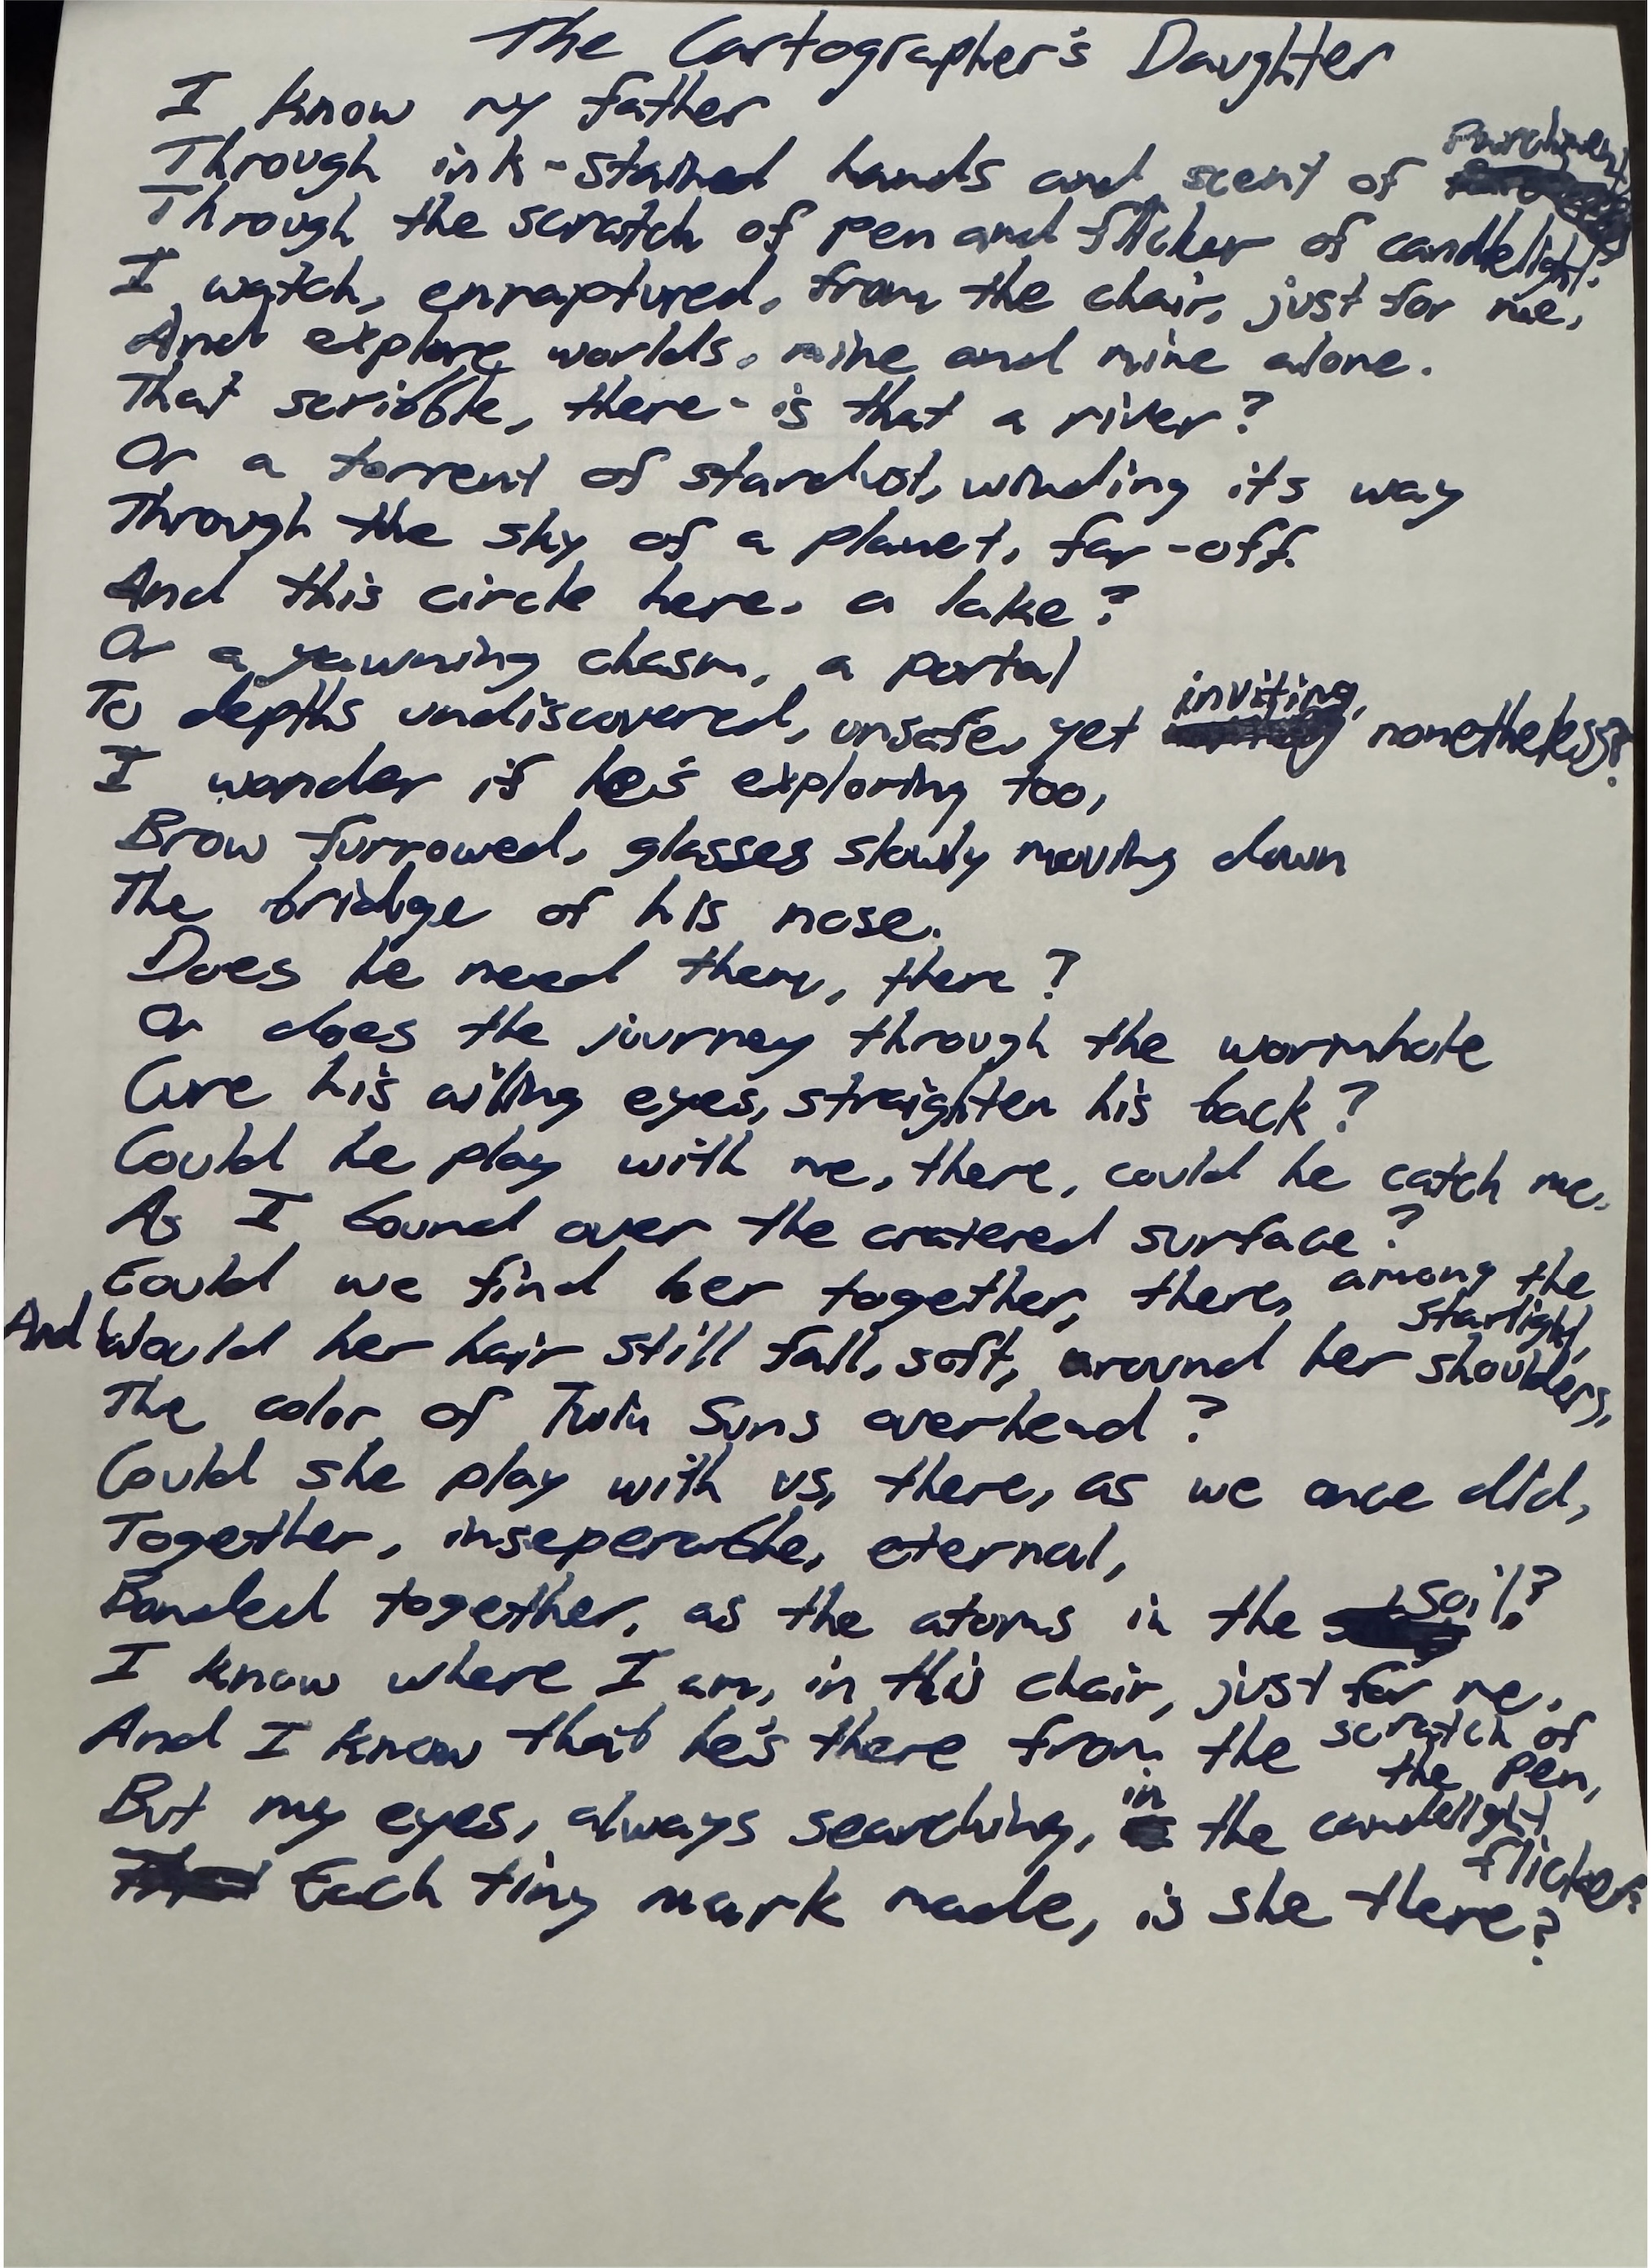 The Cartographer's Daughter
I know my father
Through ink-stained hands and scent of parchment,
Through the scratch of pen and flicker of candlelight.
I watch, enraptured, from the chair, just for me,
And explore worlds, mine and mine alone.
That scribble, there - is that a river?
Or a torrent of stardust, winding its way
Through the sky of a planet, far-off.
And this circle here, a lake?
Or a yawning chasm, a portal
To depths undiscovered, unsafe, yet inviting, nonetheless?
I wonder if he's exploring too,
Brow furrowed, glasses slowly moving down
The bridge of his nose.
Does he need them, there?
Or does the journey through the wormhole
Cure his ailing eyes, straighten his back?
Could he play with me, there, could he catch me,
As I bound over the cratered surface?
Could we find her together, there, among the starlight,
And Would her hair still fall, soft, around her shoulders,
The color of Twin Suns overhead?
Could she play with us, there, as we once did,
Together, inseperable, eternal,
Bonded together, as the atoms in the soil?
I know where I am, in this chair, just for me,
And I know that he's there from the scratch of the pen,
But my eyes, always searching, in the candlelight flicker:
Each tiny mark made, is she there?